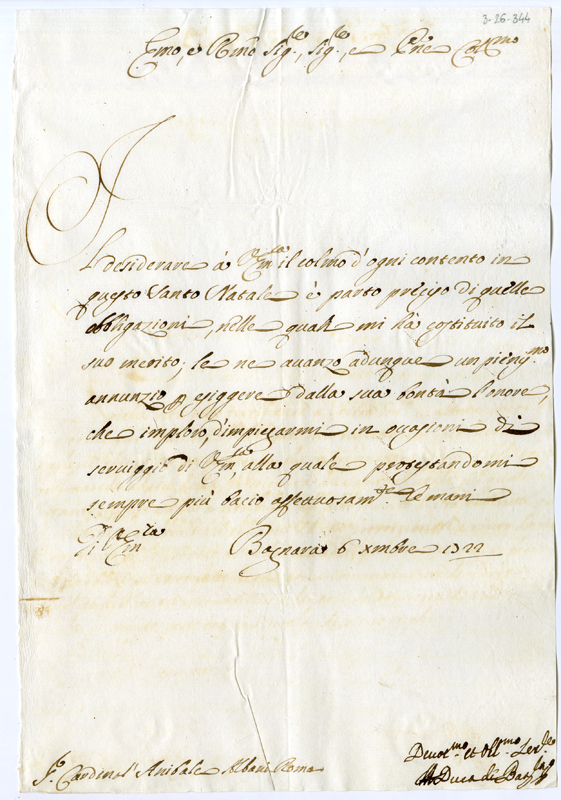 3-26-344
Emo, e Rmo Sig.re, Sig.re, e Pne Colmo
Il desiderare à V. Em.za il colmo d'ogni contento in
questo Santo Natale è parto preciso di quelle
obbligazioni, nelle quali mi hà costituito il
suo merito; le ne avanzo adunque un pienis.mo
annunzio p esiggere dalla sua bontà l'onore,
che imploro, d'impiegarmi in occasioni di
serviggio di V. Em.za, alla quale protestandomi
sempre più bacio affettuosam.te le mani
Di V. Em.za
Bagnara 6 Xmbre 1722
S.r Cardinal' Anibale Albani Roma
Devot.mo et Obl.mo Ser.re
Il Duca di Bag.ra